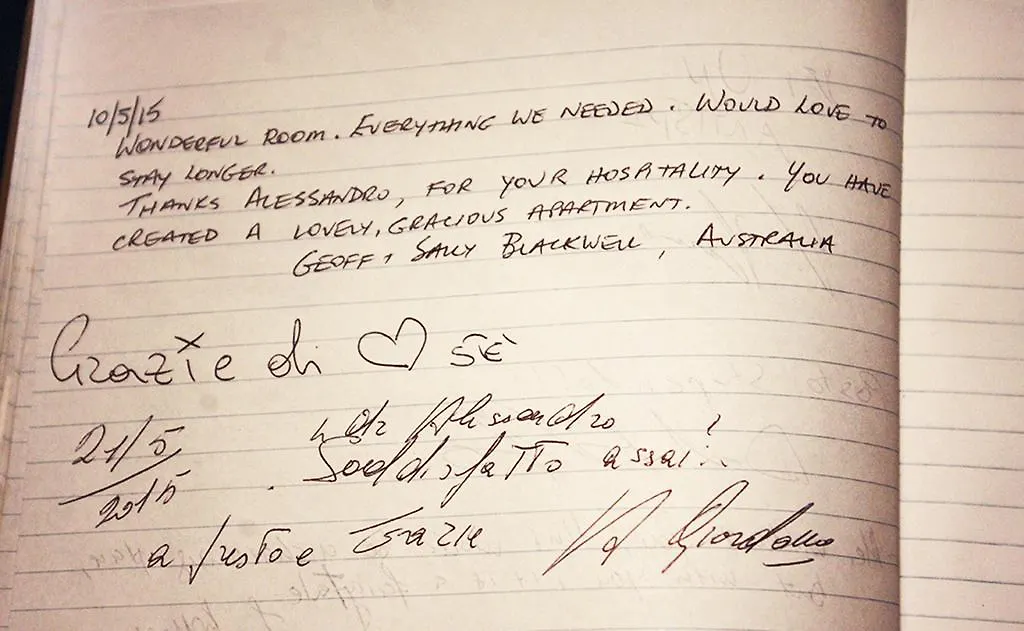 10/5/15
WONDERFUL ROOM. EVERYTHING WE NEEDED. WOULD LOVE TO
STAY LONGER.
THANKS ALESSANDRO, FOR YOUR HOSPITALITY. YOU HAVE
CREATED A LOVELY, GRACIOUS APARTMENT.
GEOFF + SALLY BLACKWELL, AUSTRALIA
Grazie di ♡
21/5
2015
Alessandro
Soddisfatto assai
Grazie
Giordano